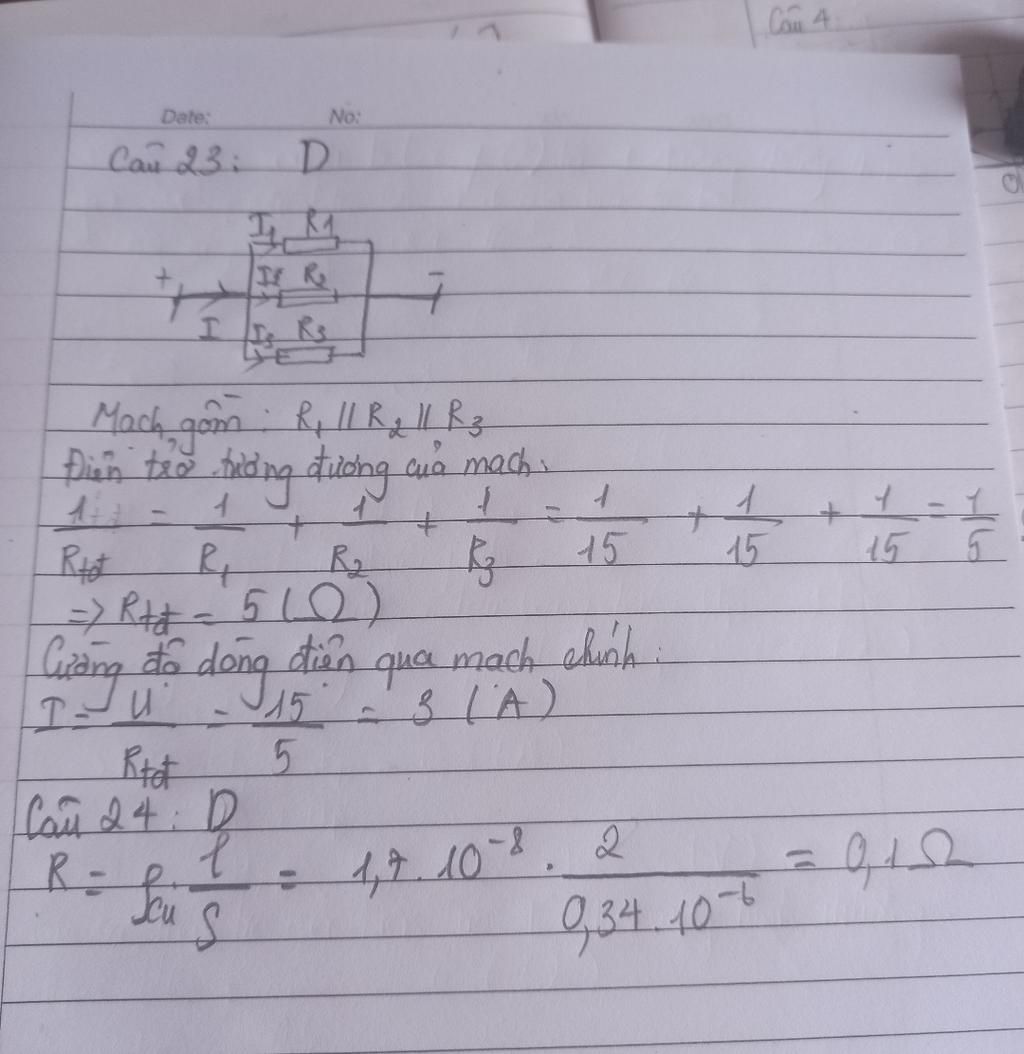 Câu 4
Date: No:
Câu 23: D
I1 R1
+ I2 R2 -
I I3 R3
Mạch gồm: R1 // R2 // R3
Điện trở tương đương của mạch:
1/Rtđ = 1/R1 + 1/R2 + 1/R3 = 1/15 + 1/15 + 1/15 = 1/5
=> Rtđ = 5 (Ω)
Cường độ dòng điện qua mạch chính:
I = U/Rtđ = 15/5 = 3 (A)
Câu 24: D
R = ρcu . l/S = 1,7.10⁻⁸ . 2/0,34.10⁻⁶ = 0,1Ω